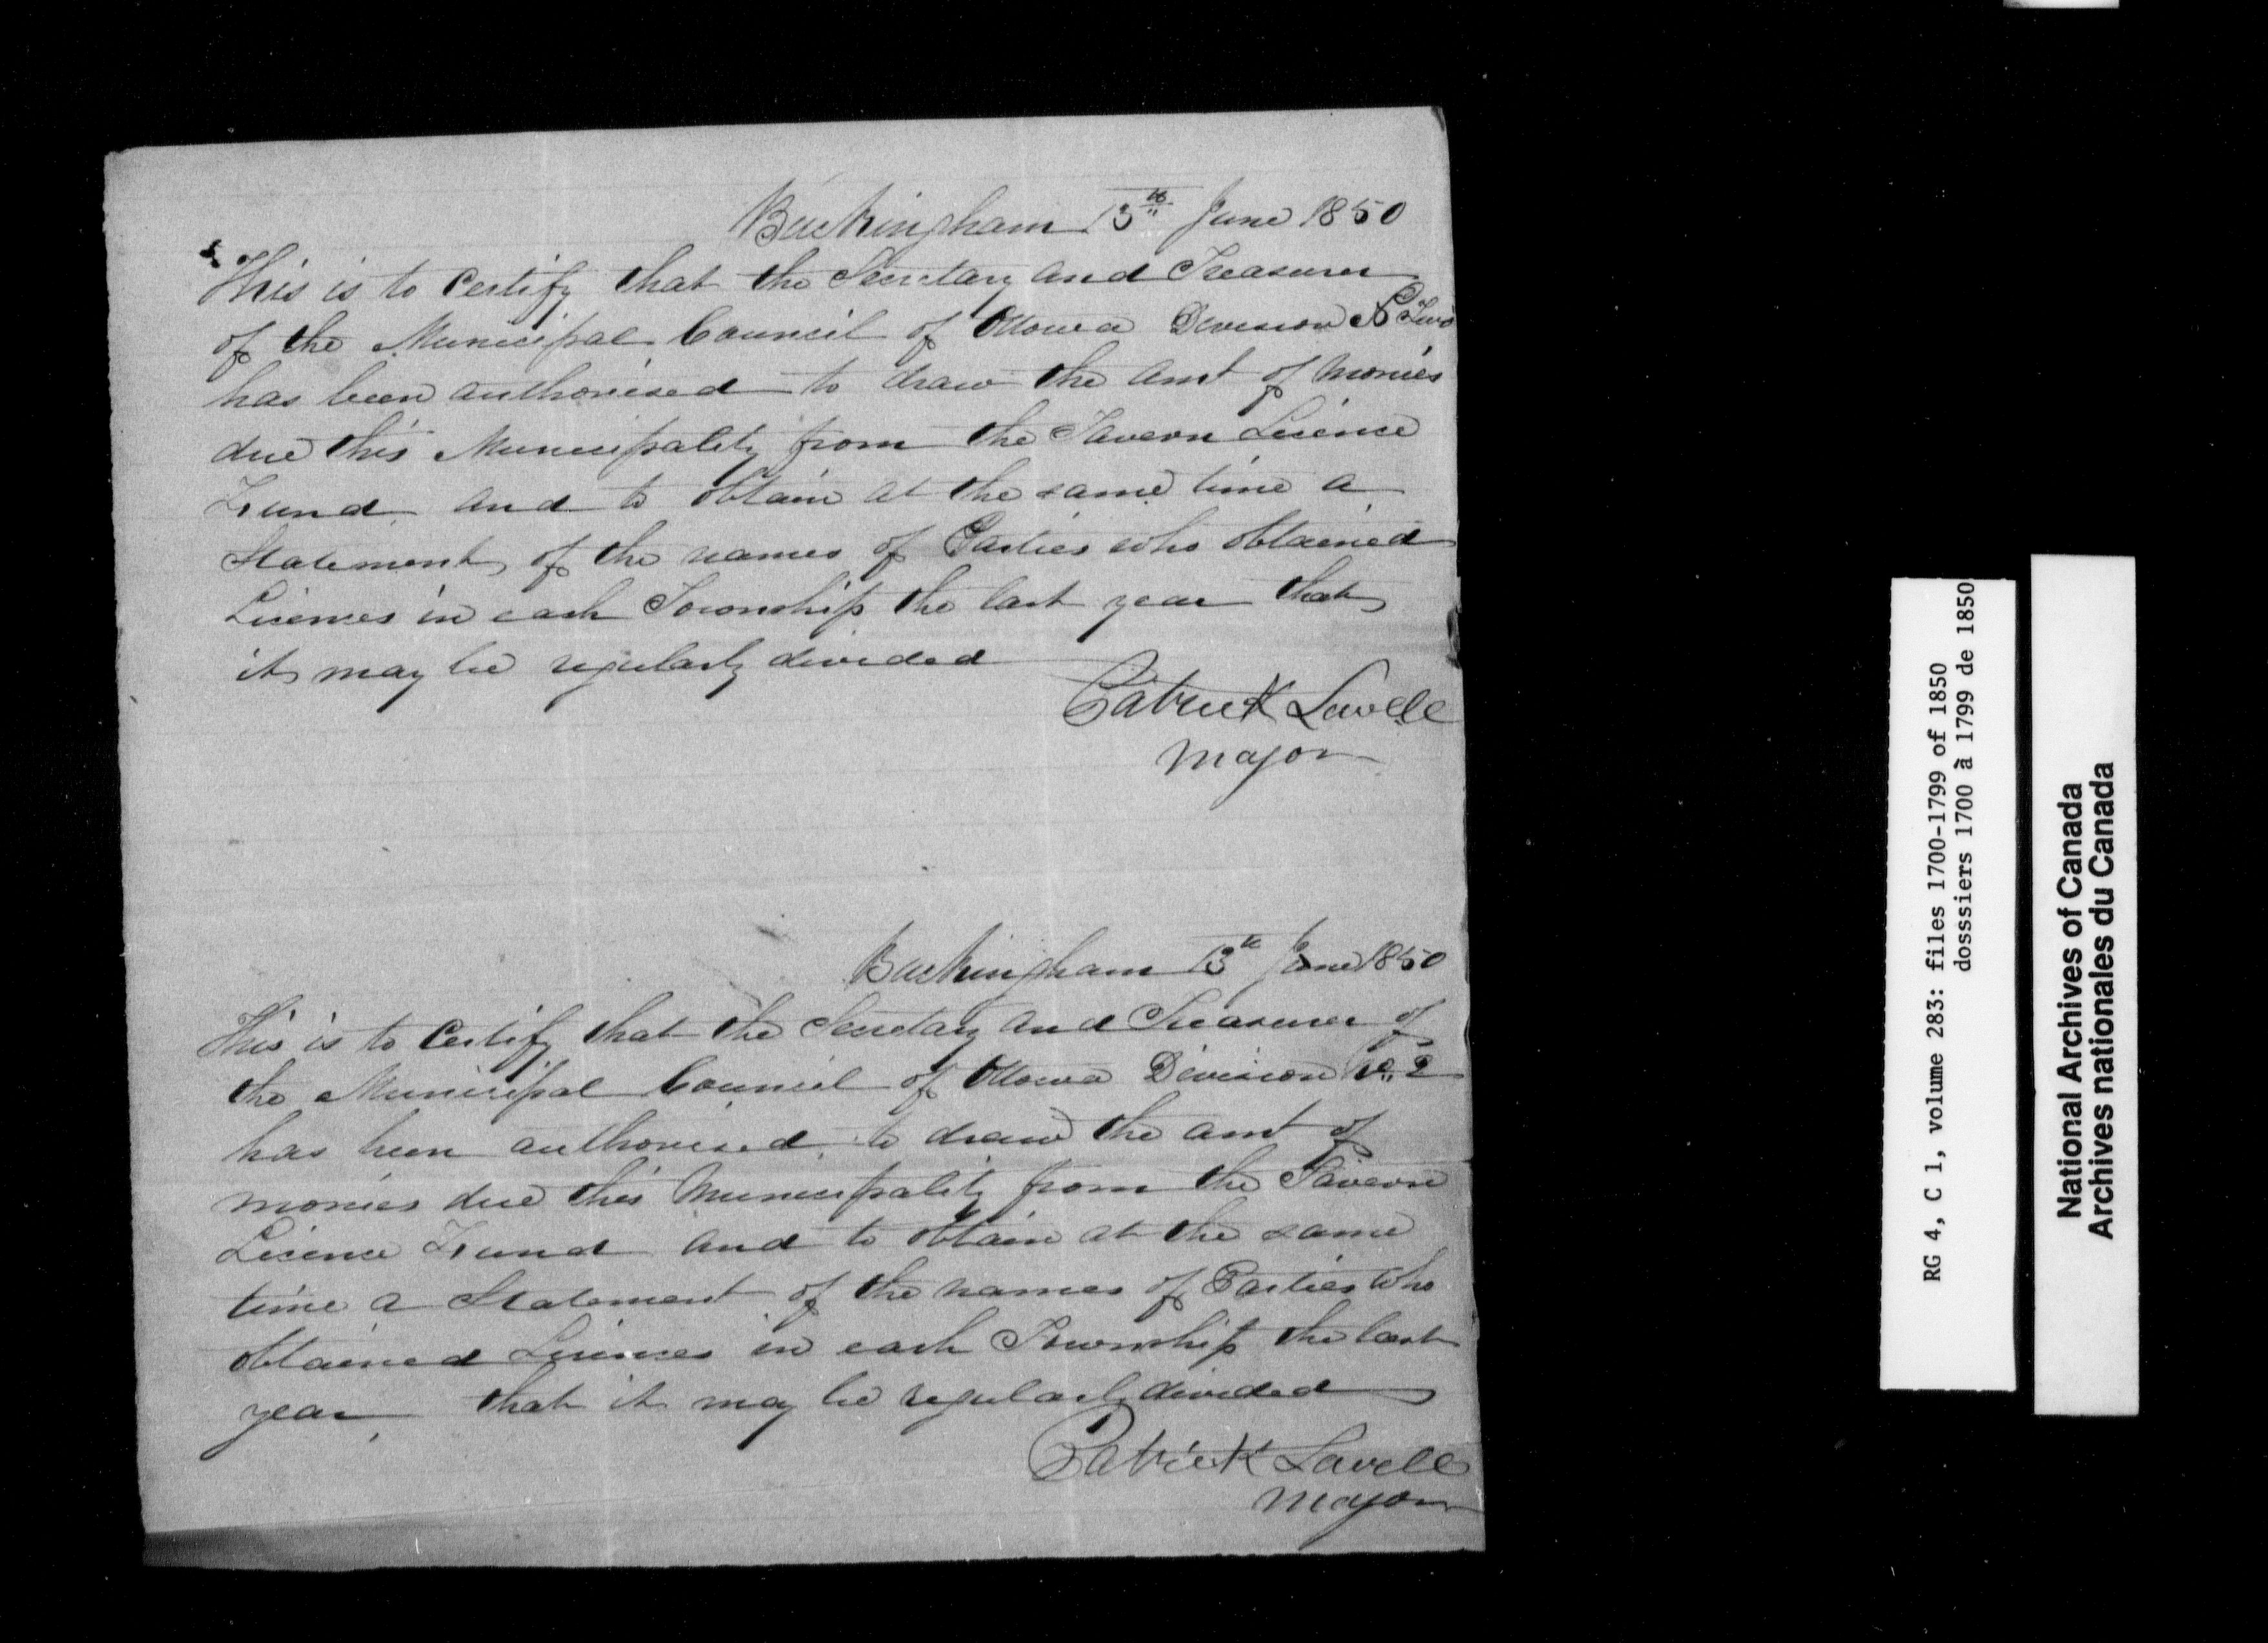 Buckingham 13th June 1850
This is to Certify that the Secretary and Treasurer
of the Municipal Council of Ottowa Division No Two
has been authorised to draw the amt of monies
due this Municipality from the Tavern Licence
Fund and to obtain at the same time a
Statement of the names of Parties who obtained
Licences in each Township the last year that
it may be regularly divided
Patrick Lavell
Mayor
Buckingham 13th June 1850
This is to Certify that the Secretary and Treasurer of
the Municipal Council of Ottowa Division No. 2
has been authorised to draw the amt of
monies due this Municipality from the Tavern
Licence Fund and to obtain at the same
time a Statement of the names of Parties who
obtained Licences in each Township the last
year that it may be regularly divided
Patrick Lavell
Mayor
RG 4, C 1, volume 283: files 1700-1799 of 1850
dosssiers 1700 à 1799 de 1850
National Archives of Canada
Archives nationales du Canada